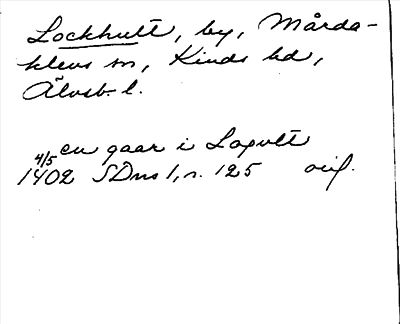 Lockhult, by, Mårda-
klevs sn, Kinds hd,
Älvsb. l.
en gaar i Loxult
4/5 1402 SDns 1, n. 125 orig.